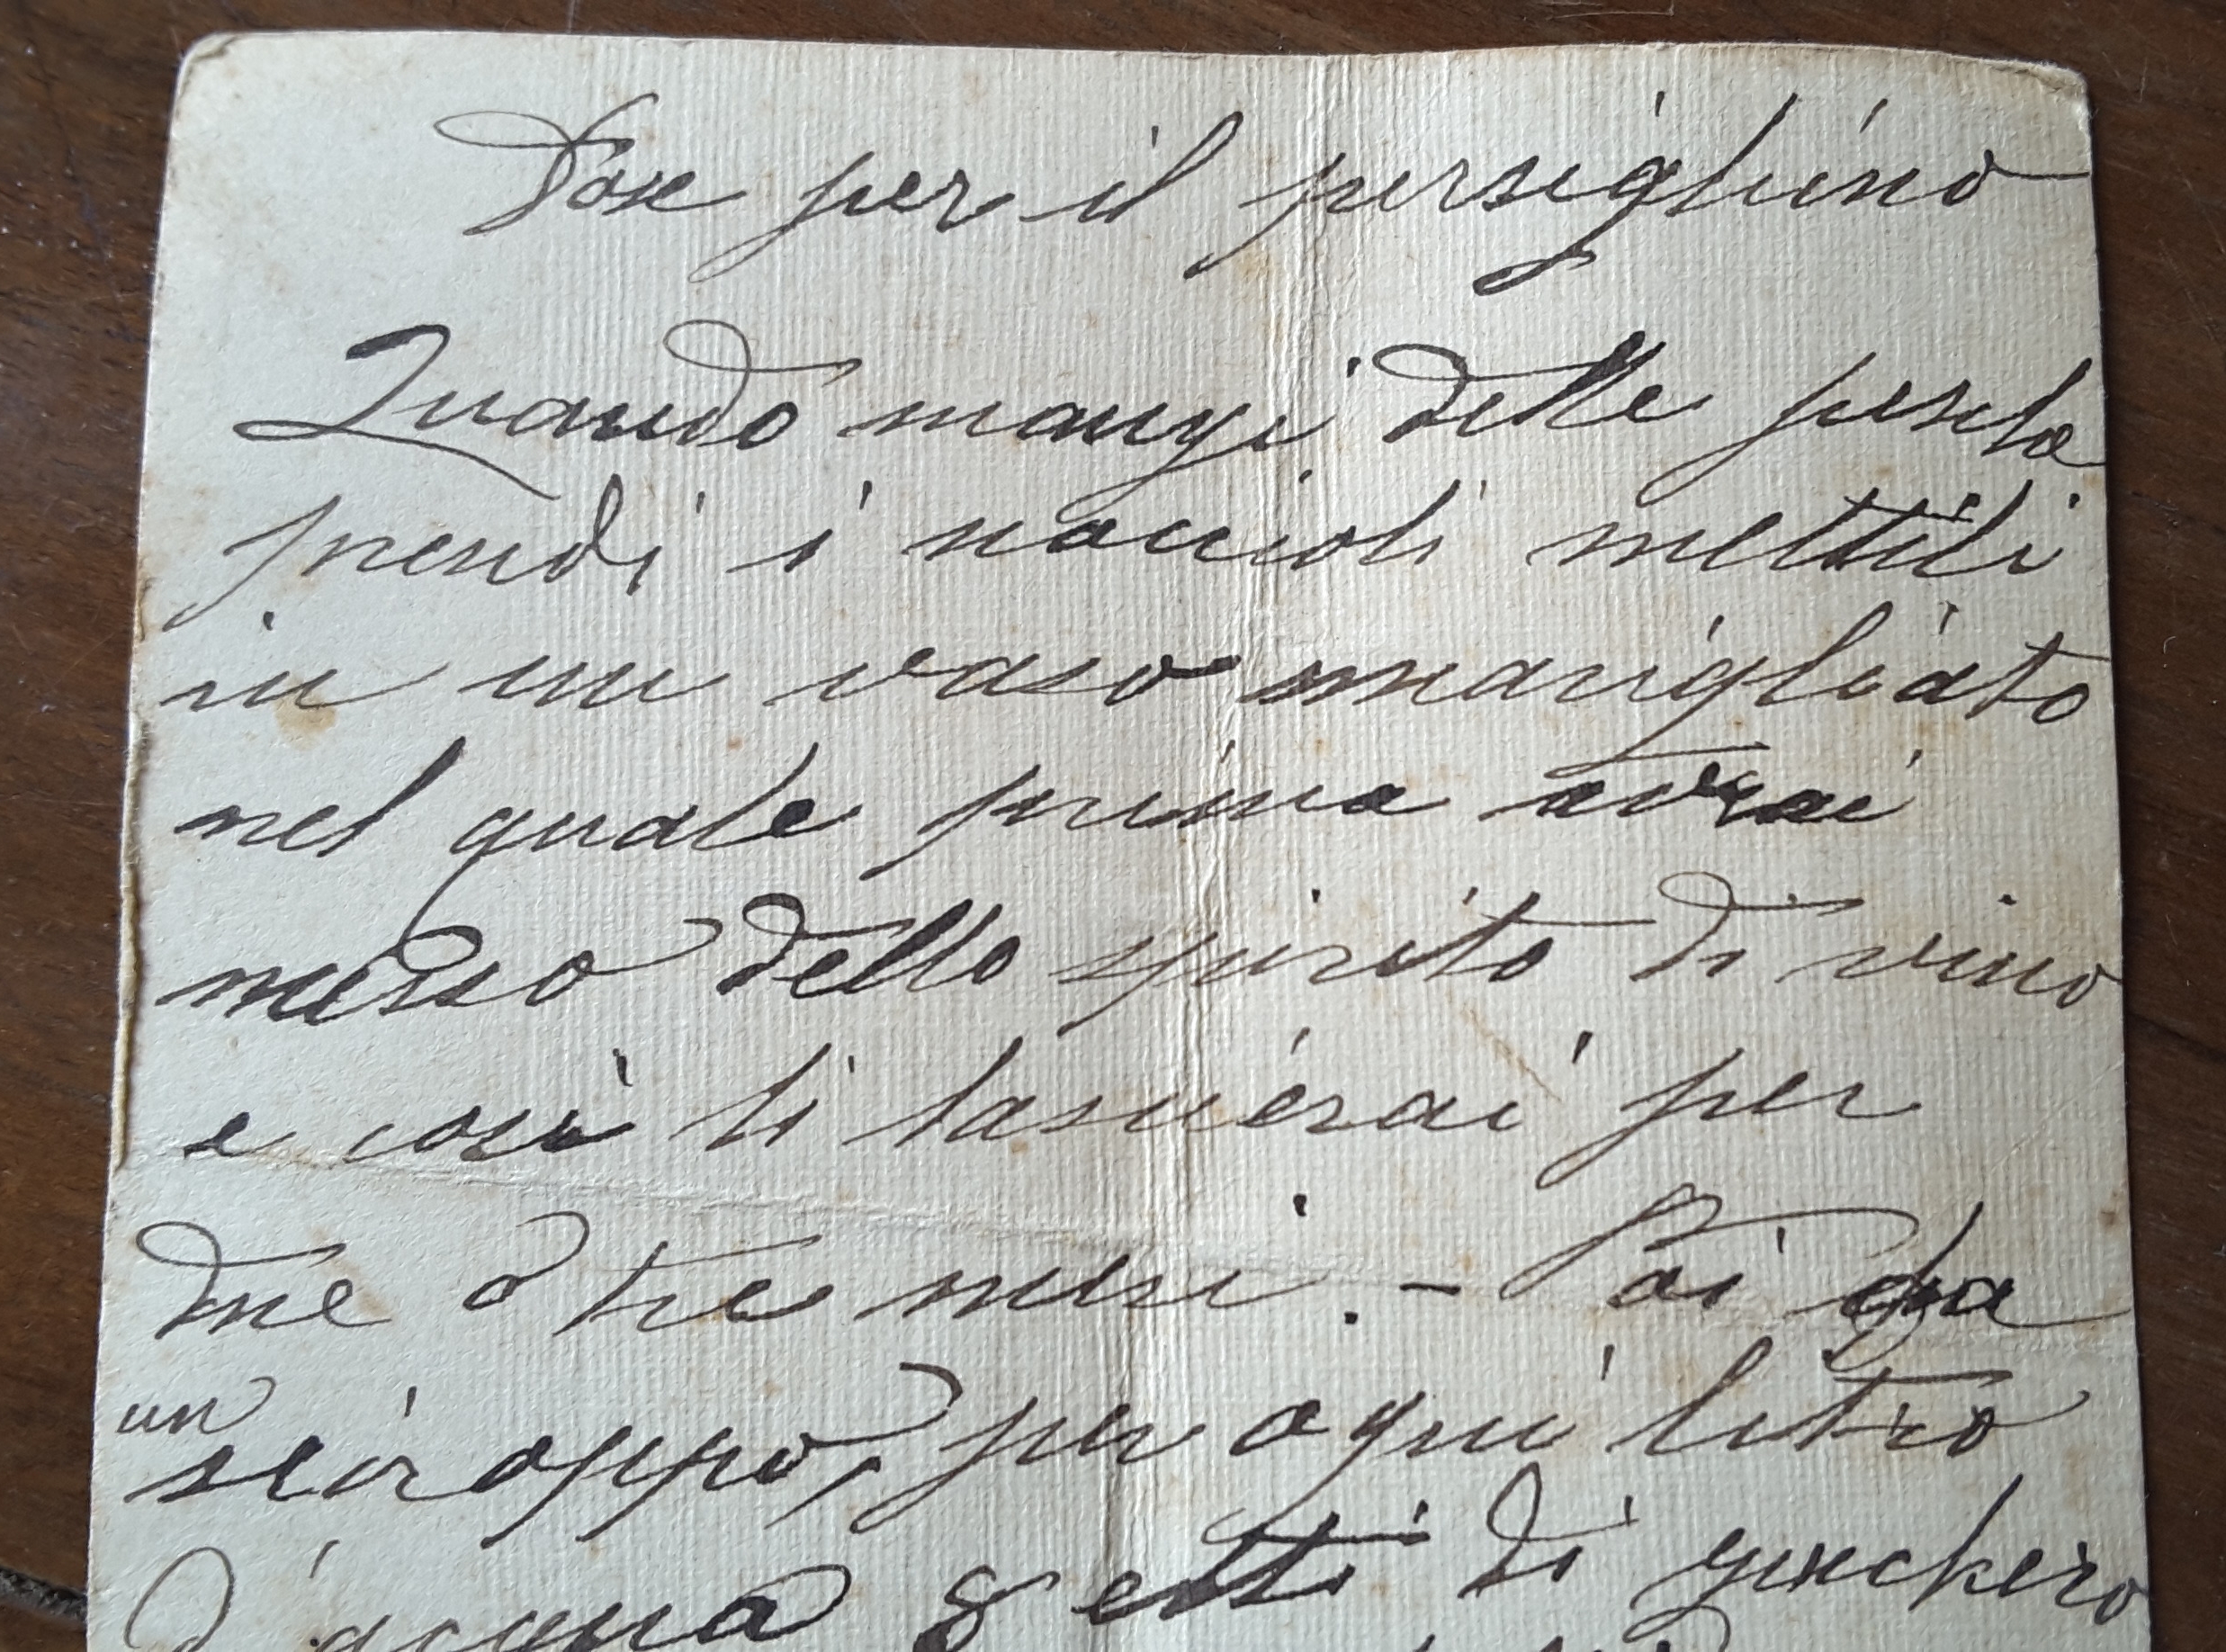 Dose per il persiglino
Quando mangi delle pesche
prendi i noccioli mettili
in un vaso
nel quale prima avrai
messo dello spirito di vino
e così li lascierai per
due o tre mesi. - Poi fa
un
sciroppo, per ogni litro
d'acqua 8 etti di zucchero